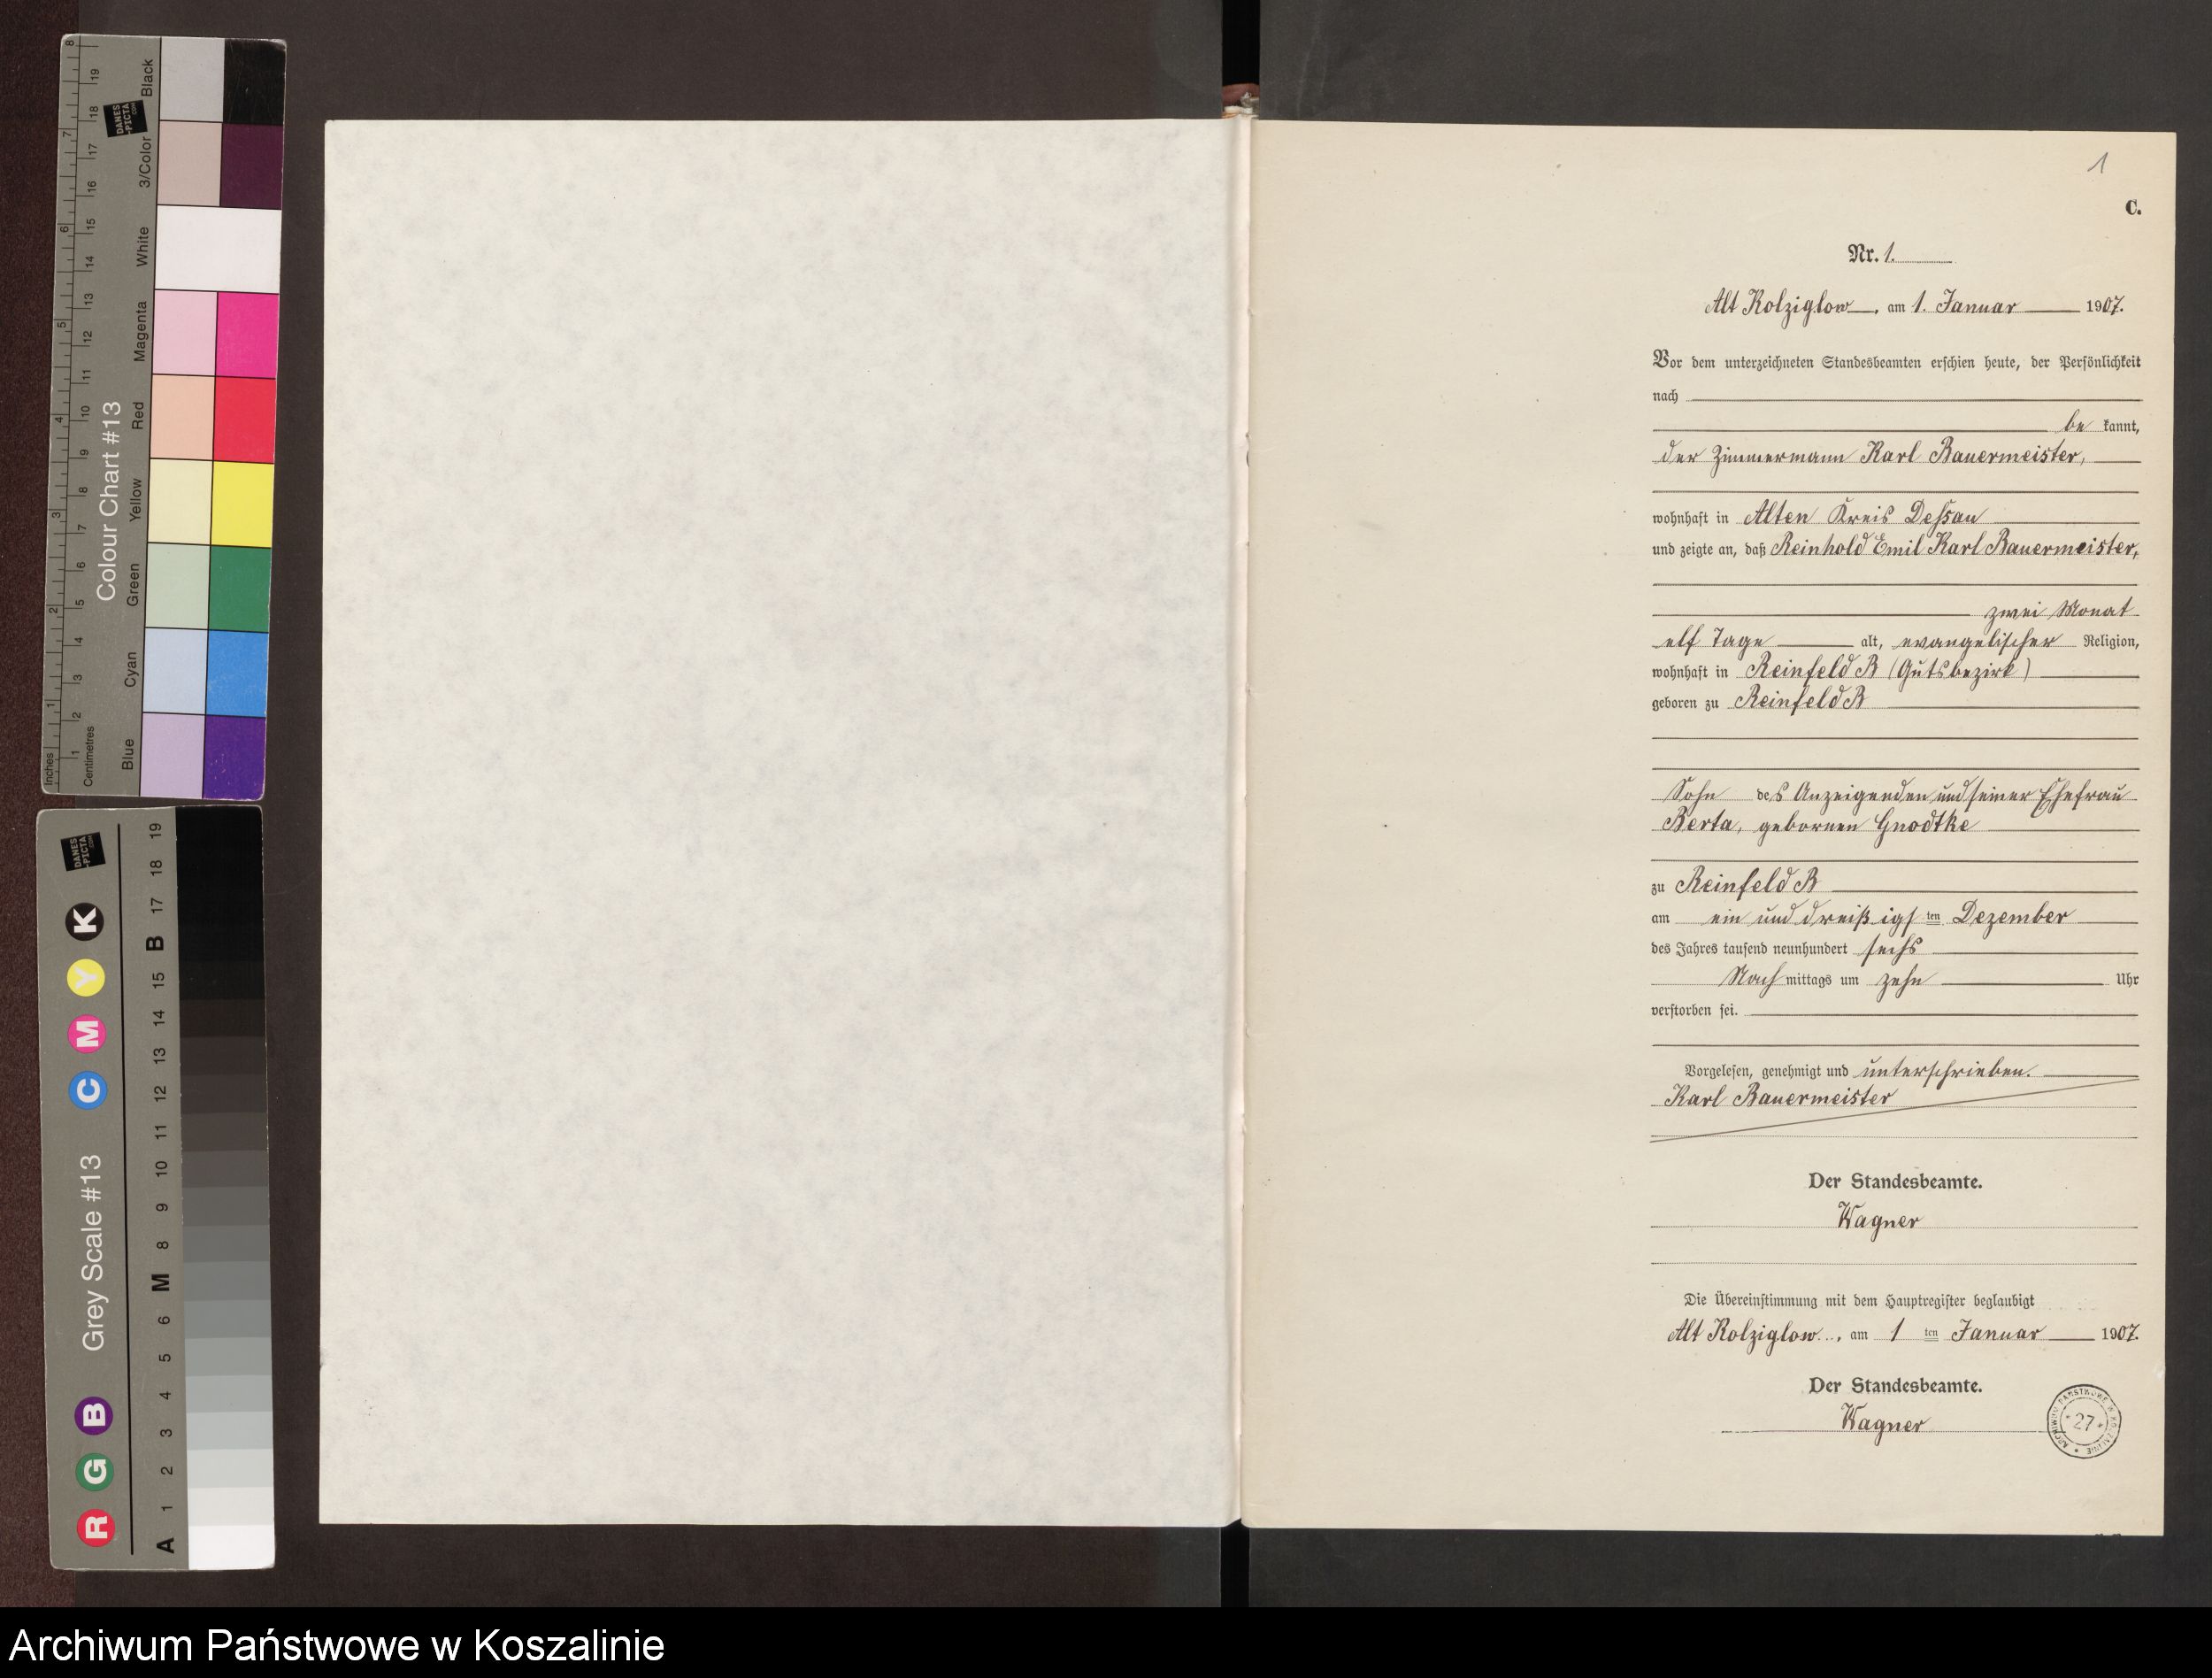 1
C.
Nr. 1.
Alt Kolziglow, am 1. Januar 1907.
Vor dem unterzeichneten Standesbeamten erschien heute, der Persönlichkeit
nach
be kannt,
der Zimmermann Karl Bauermeister,
wohnhaft in Alten Kreis Dessau
und zeigte an, daß Reinhold Emil Karl Bauermeister,
zwei Monat
elf Tage alt, evangelischer Religion,
wohnhaft in Reinfeld B (Gutsbezirk)
geboren zu Reinfeld B
Sohn des Anzeigenden und seiner Ehefrau
Berta, gebornen Gnodtke
zu Reinfeld B
am ein und dreißigsten Dezember
des Jahres tausend neunhundert sechs
Nachmittags um zehn Uhr
verstorben sei.
Vorgelesen, genehmigt und unterschrieben.
Karl Bauermeister
Der Standesbeamte.
Wagner
Die Übereinstimmung mit dem Hauptregister beglaubigt
Alt Kolziglow, am 1 ten Januar 1907.
Der Standesbeamte.
Wagner
ARCHIWUM PAŃSTWOWE W KOSZALINIE
* 27 *
Colour Chart #13
Inches
Centimetres
Blue
Cyan
Green
Yellow
Red
Magenta
White
3/Color
Black
DANES
-PICTA
.COM
1 2 3 4 5 6 7 8
1 2 3 4 5 6 7 8 9 10 11 12 13 14 15 16 17 18 19
Grey Scale #13
R G B C M Y K
A 1 2 3 4 5 6 M 8 9 10 11 12 13 14 15 B 17 18 19
DANES
-PICTA
.COM
Archiwum Państwowe w Koszalinie